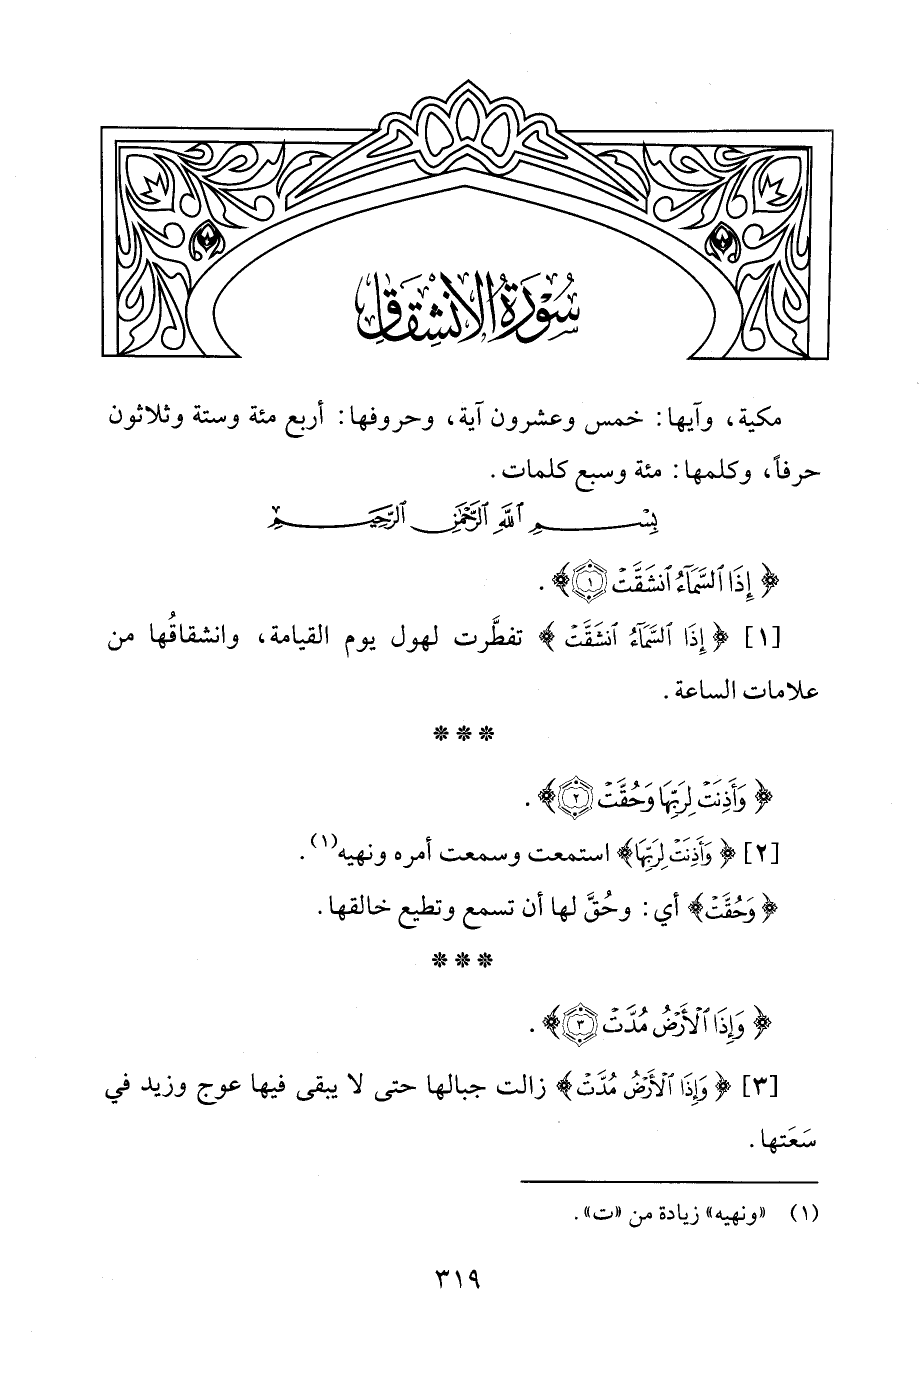 سُوْرَةُ الإِنْشِقَاقِ
مكية، وآيها: خمس وعشرون آية، وحروفها: أربع مئة وستة وثلاثون
حرفاً، وكلمها: مئة وسبع كلمات.
بِسْمِ ٱللَّهِ ٱلرَّحْمَٰنِ ٱلرَّحِيمِ
﴿إِذَا ٱلسَّمَآءُ ٱنشَقَّتْ ١﴾.
[١] ﴿إِذَا ٱلسَّمَآءُ ٱنشَقَّتْ﴾ تفطَّرت لهول يوم القيامة، وانشقاقُها من
علامات الساعة.
* * *
﴿وَأَذِنَتْ لِرَبِّهَا وَحُقَّتْ ٢﴾.
[٢] ﴿وَأَذِنَتْ لِرَبِّهَا﴾ استمعت وسمعت أمره ونهيه(١).
﴿وَحُقَّتْ﴾ أي: وحُقَّ لها أن تسمع وتطيع خالقها.
* * *
﴿وَإِذَا ٱلْأَرْضُ مُدَّتْ ٣﴾.
[٣] ﴿وَإِذَا ٱلْأَرْضُ مُدَّتْ﴾ زالت جبالها حتى لا يبقى فيها عوج وزيد في
سَعَتها.
(١) «ونهيه» زيادة من «ت».
٣١٩